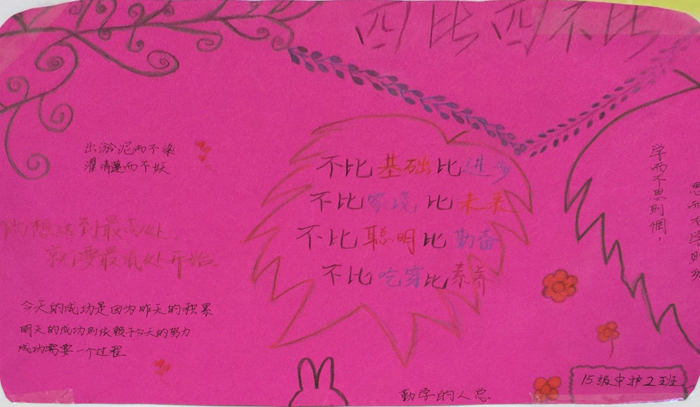 四比四不比
出淤泥而不染
濯清莲而不妖
不比基础比进步
不比家境比未来
不比聪明比勤奋
不比吃穿比素养
你想达到最高处,
就要最低处开始。
今天的成功是因为昨天的积累
明天的成功则依赖于今天的努力
成功需要一个过程
学而不思则惘,
勤学的人总
15级中护2班